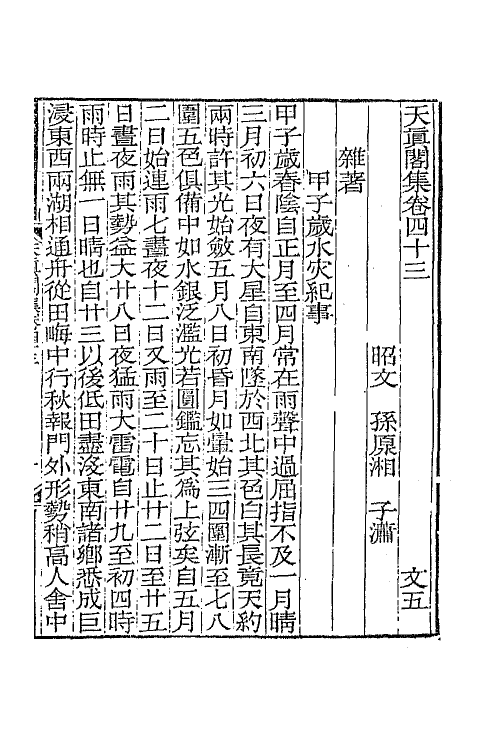 天眞閣集卷四十三　文五
昭文　孫原湘　子瀟
雜著
甲子歲水灾紀事
甲子歲春陰自正月至四月常在雨聲中過屈指不及一月晴
三月初六日夜有大星自東南墜於西北其色白其長竟天約
兩時許其光始斂五月八日初昏月如暈始三四圍漸至七八
圍五色俱備中如水銀泛濫光若圓鑑忘其爲上弦矣自五月
二日始連雨七晝夜十二日又雨至二十日止廿二日至廿五
日晝夜雨其勢益大廿八日夜猛雨大雷電自廿九至初四時
雨時止無一日晴也自廿三以後低田盡沒東南諸鄉悉成巨
浸東西兩湖相通舟從田畮中行秋報門外形勢稍高人舍中